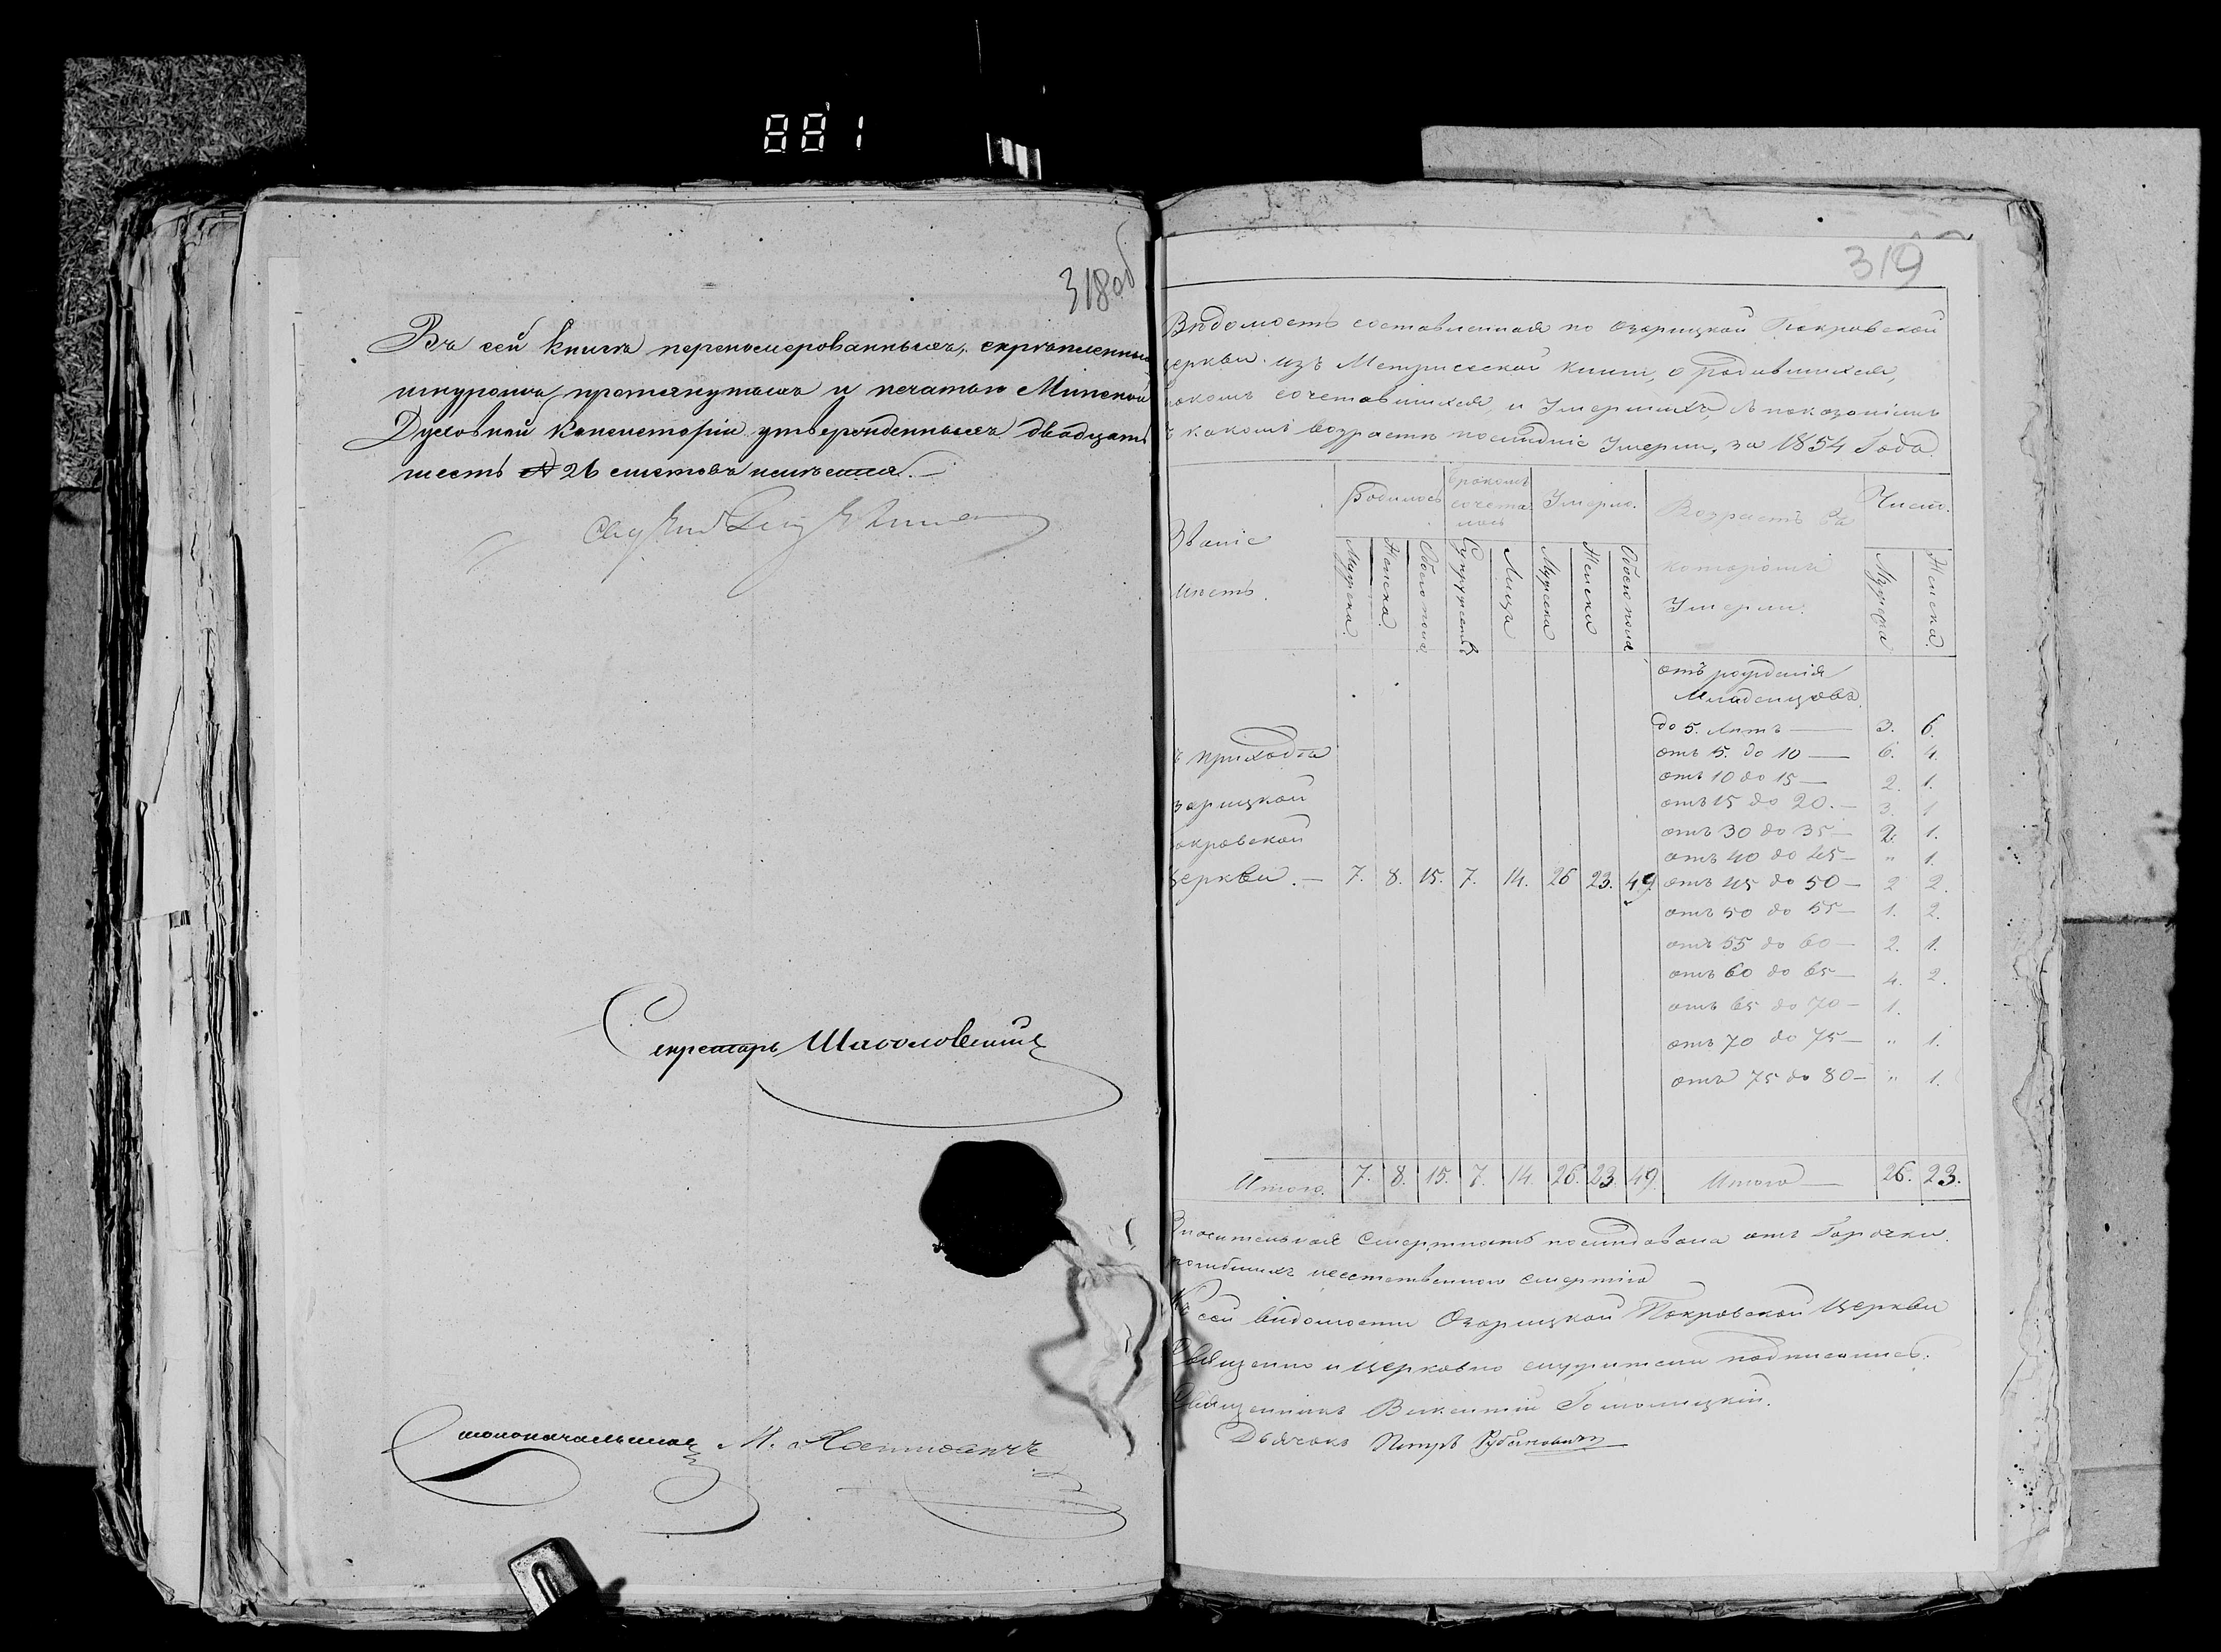 881
318об
Въ сей книгѣ перенумерованныхъ, скрѣпленныхъ
шнуромъ протянутыхъ и печатью Минской
Духовной Консисторіи утвержденныхъ двадцать
шесть 26 листовъ имѣется.
Секретарь
Столоначальникъ М.
319
Вѣдомость составленная по Озарицкой Покровской
церкви изъ Метрической книги, о родившихся,
бракомъ сочетавшихся, и Умершихъ, съ показаніемъ
въ какомъ возрастѣ послѣдніе Умерли, за 1854 Годъ.
Званіе
мѣстъ.
Родилось
Бракомъ
сочета-
лось
Умерло.
Возрастъ въ
которомъ
Умерли.
Число.
Мужеска.
Женска.
Обоего пола
Супружествъ
Лица
Мужеска
Женска
Обоего пола
Мужеска
Женска.
отъ рожденія
Младенцовъ.
до 5. лѣтъ — 3. 6.
отъ 5. до 10 — 6. 4.
отъ 10 до 15 — 2. 1.
отъ 15 до 20. — 3. 1
отъ 30 до 35 — 2. 1.
отъ 40 до 45 — " 1.
отъ 45 до 50 — 2 2.
отъ 50 до 55 — 1. 2.
отъ 55 до 60 — 2. 1.
отъ 60 до 65 — 4. 2.
отъ 65 до 70 — 1.
отъ 70 до 75 — " 1.
отъ 75 до 80 — " 1.
ъ приходѣ
зарицкой
окровской
церкви. — 7. 8. 15. 7. 14. 26 23. 49.
Итого. 7. 8. 15. 7. 14. 26. 23. 49. Итого — 26. 23.
Значительная смертность послѣдовала отъ Горячки.
погибшихъ неестественною смертію
Къ сей вѣдомости Озарицкой Покровской Церкви
Священно и церковно служители подписались.
Священникъ Викентій
Дьячокъ Петръ